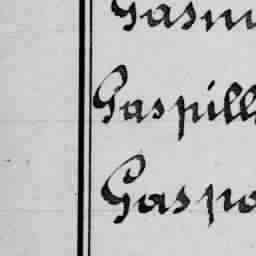 Gasm
Gaspill
Gaspa